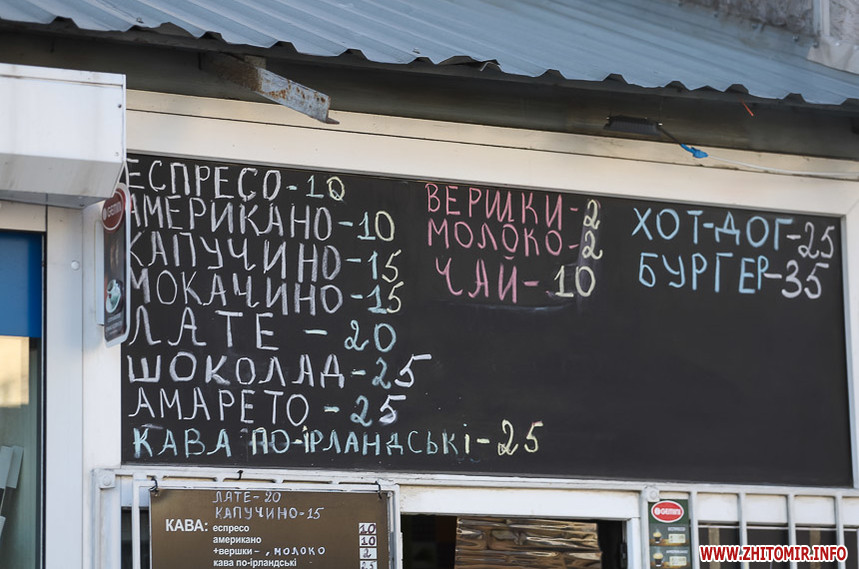 ЕСПРЕСО-10
АМЕРИКАНО-10
КАПУЧИНО-15
МОКАЧИНО-15
ЛАТЕ - 20
ШОКОЛАД-25
АМАРЕТО-25
КАВА ПО-ІРЛАНДСЬКІ-25
ВЕРШКИ-2
МОЛОКО-2
ЧАЙ-10
ХОТ-ДОГ-25
БУРГЕР-35
ЛАТЕ-20
КАПУЧИНО-15
КАВА:
еспресо 10
американо 10
+вершки-, МОЛОКО 2
кава по-ірландські
GEMINI
WWW.ZHITOMIR.INFO